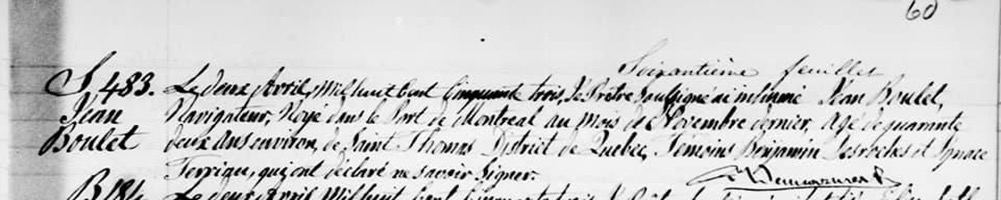 60
Soixantième feuillet
S. 483. Le deux Avril, Mil huit Cent Cinquante trois, Je Prêtre Soussigné ai inhumé Jean Boulet,
Jean Navigateur, Noyé dans le Port de Montréal au mois de Novembre dernier, Agé de quarante
Boulet deux ans environ, de Saint Thomas District de Québec, Témoins Benjamin Desroches et Ignace
Ferrique, qui ont déclaré ne savoir Signer.
Le deux Avril Mil huit Cent